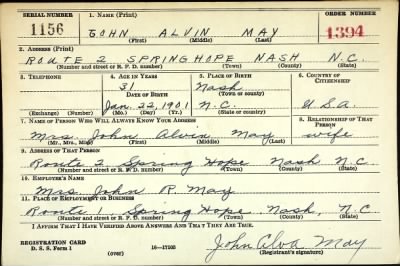 SERIAL NUMBER 1. NAME (Print) ORDER NUMBER
1156 JOHN ALVIN MAY 1394
(First) (Middle) (Last)
2. ADDRESS (Print)
ROUTE 2 SPRING HOPE NASH N.C.
(Number and street or R. F. D. number) (Town) (County) (State)
3. TELEPHONE 4. AGE IN YEARS 5. PLACE OF BIRTH 6. COUNTRY OF CITIZENSHIP
31 Nash
DATE OF BIRTH (Town or county)
Jan. 22, 1901 N.C. U.S.A.
(Exchange) (Number) (Mo.) (Day) (Yr.) (State or country)
7. NAME OF PERSON WHO WILL ALWAYS KNOW YOUR ADDRESS 8. RELATIONSHIP OF THAT PERSON
Mrs. John Alvin May wife
(Mr., Mrs., Miss) (First) (Middle) (Last)
9. ADDRESS OF THAT PERSON
Route 2 Spring Hope Nash N.C.
(Number and street or R. F. D. number) (Town) (County) (State)
10. EMPLOYER'S NAME
Mrs. John R. May
11. PLACE OF EMPLOYMENT OR BUSINESS
Route 1 Spring Hope Nash, N.C
(Number and street or R. F. D. number) (Town) (County) (State)
I AFFIRM THAT I HAVE VERIFIED ABOVE ANSWERS AND THAT THEY ARE TRUE.
REGISTRATION CARD
D. S. S. Form 1 (over) 16—17105 John Alva May
(Registrant's signature)